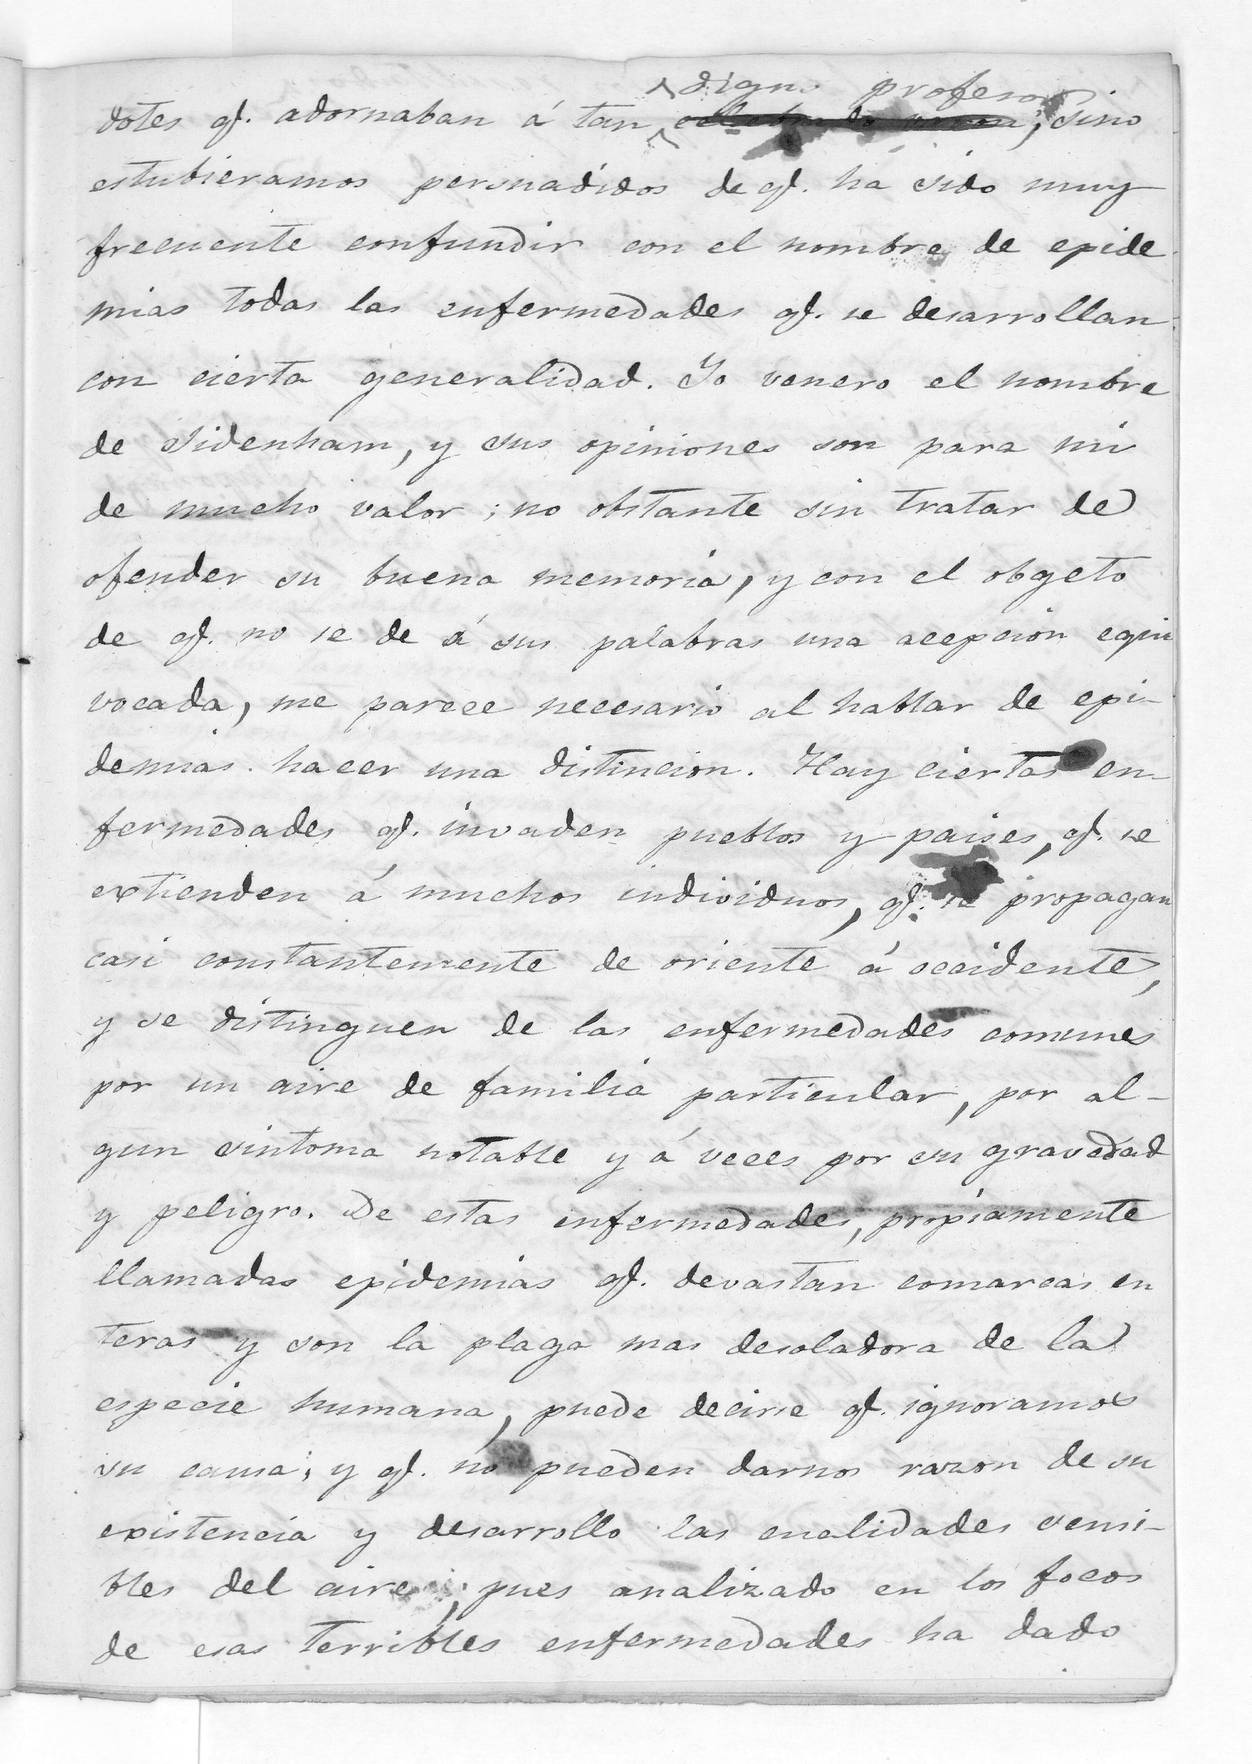 digno profesor
dotes qf. adornaban á tan celebrado; sino
estubieramos persuadidos de qf. há sido muy
frecuente confundir con el nombre de epide
mias todas las enfermedades qf. se desarrollan
con cierta generalidad. Yo venero el nombre
de Sidenham, y sus opiniones son para mi
de mucho valor; no obstante sin tratar de
ofender su buena memoria, y con el obgeto
de qf. no se de á sus palabras una acepcion equi
vocada, me parece necesario al hablar de epi-
demias hacer una distincion. Hay ciertas en-
fermedades qf. invaden pueblos y paises, qf. se
extienden á muchos individuos, qf. se propagan
casi constantemente de oriente á occidente,
y se distinguen de las enfermedades comunes
por un aire de familia particular, por al-
gun sintoma notable y á veces por su gravedad
y peligro. De estas enfermedades, propiamente
llamadas epidemias qf. devastan comarcas en
teras y son la plaga mas desoladora de la
especie humana, puede decirse qf. ignoramos
su causa; y qf. no pueden darnos razon de su
existencia y desarrollo las cualidades sensi-
bles del aire; pues analizado en los focos
de esas terribles enfermedades ha dado